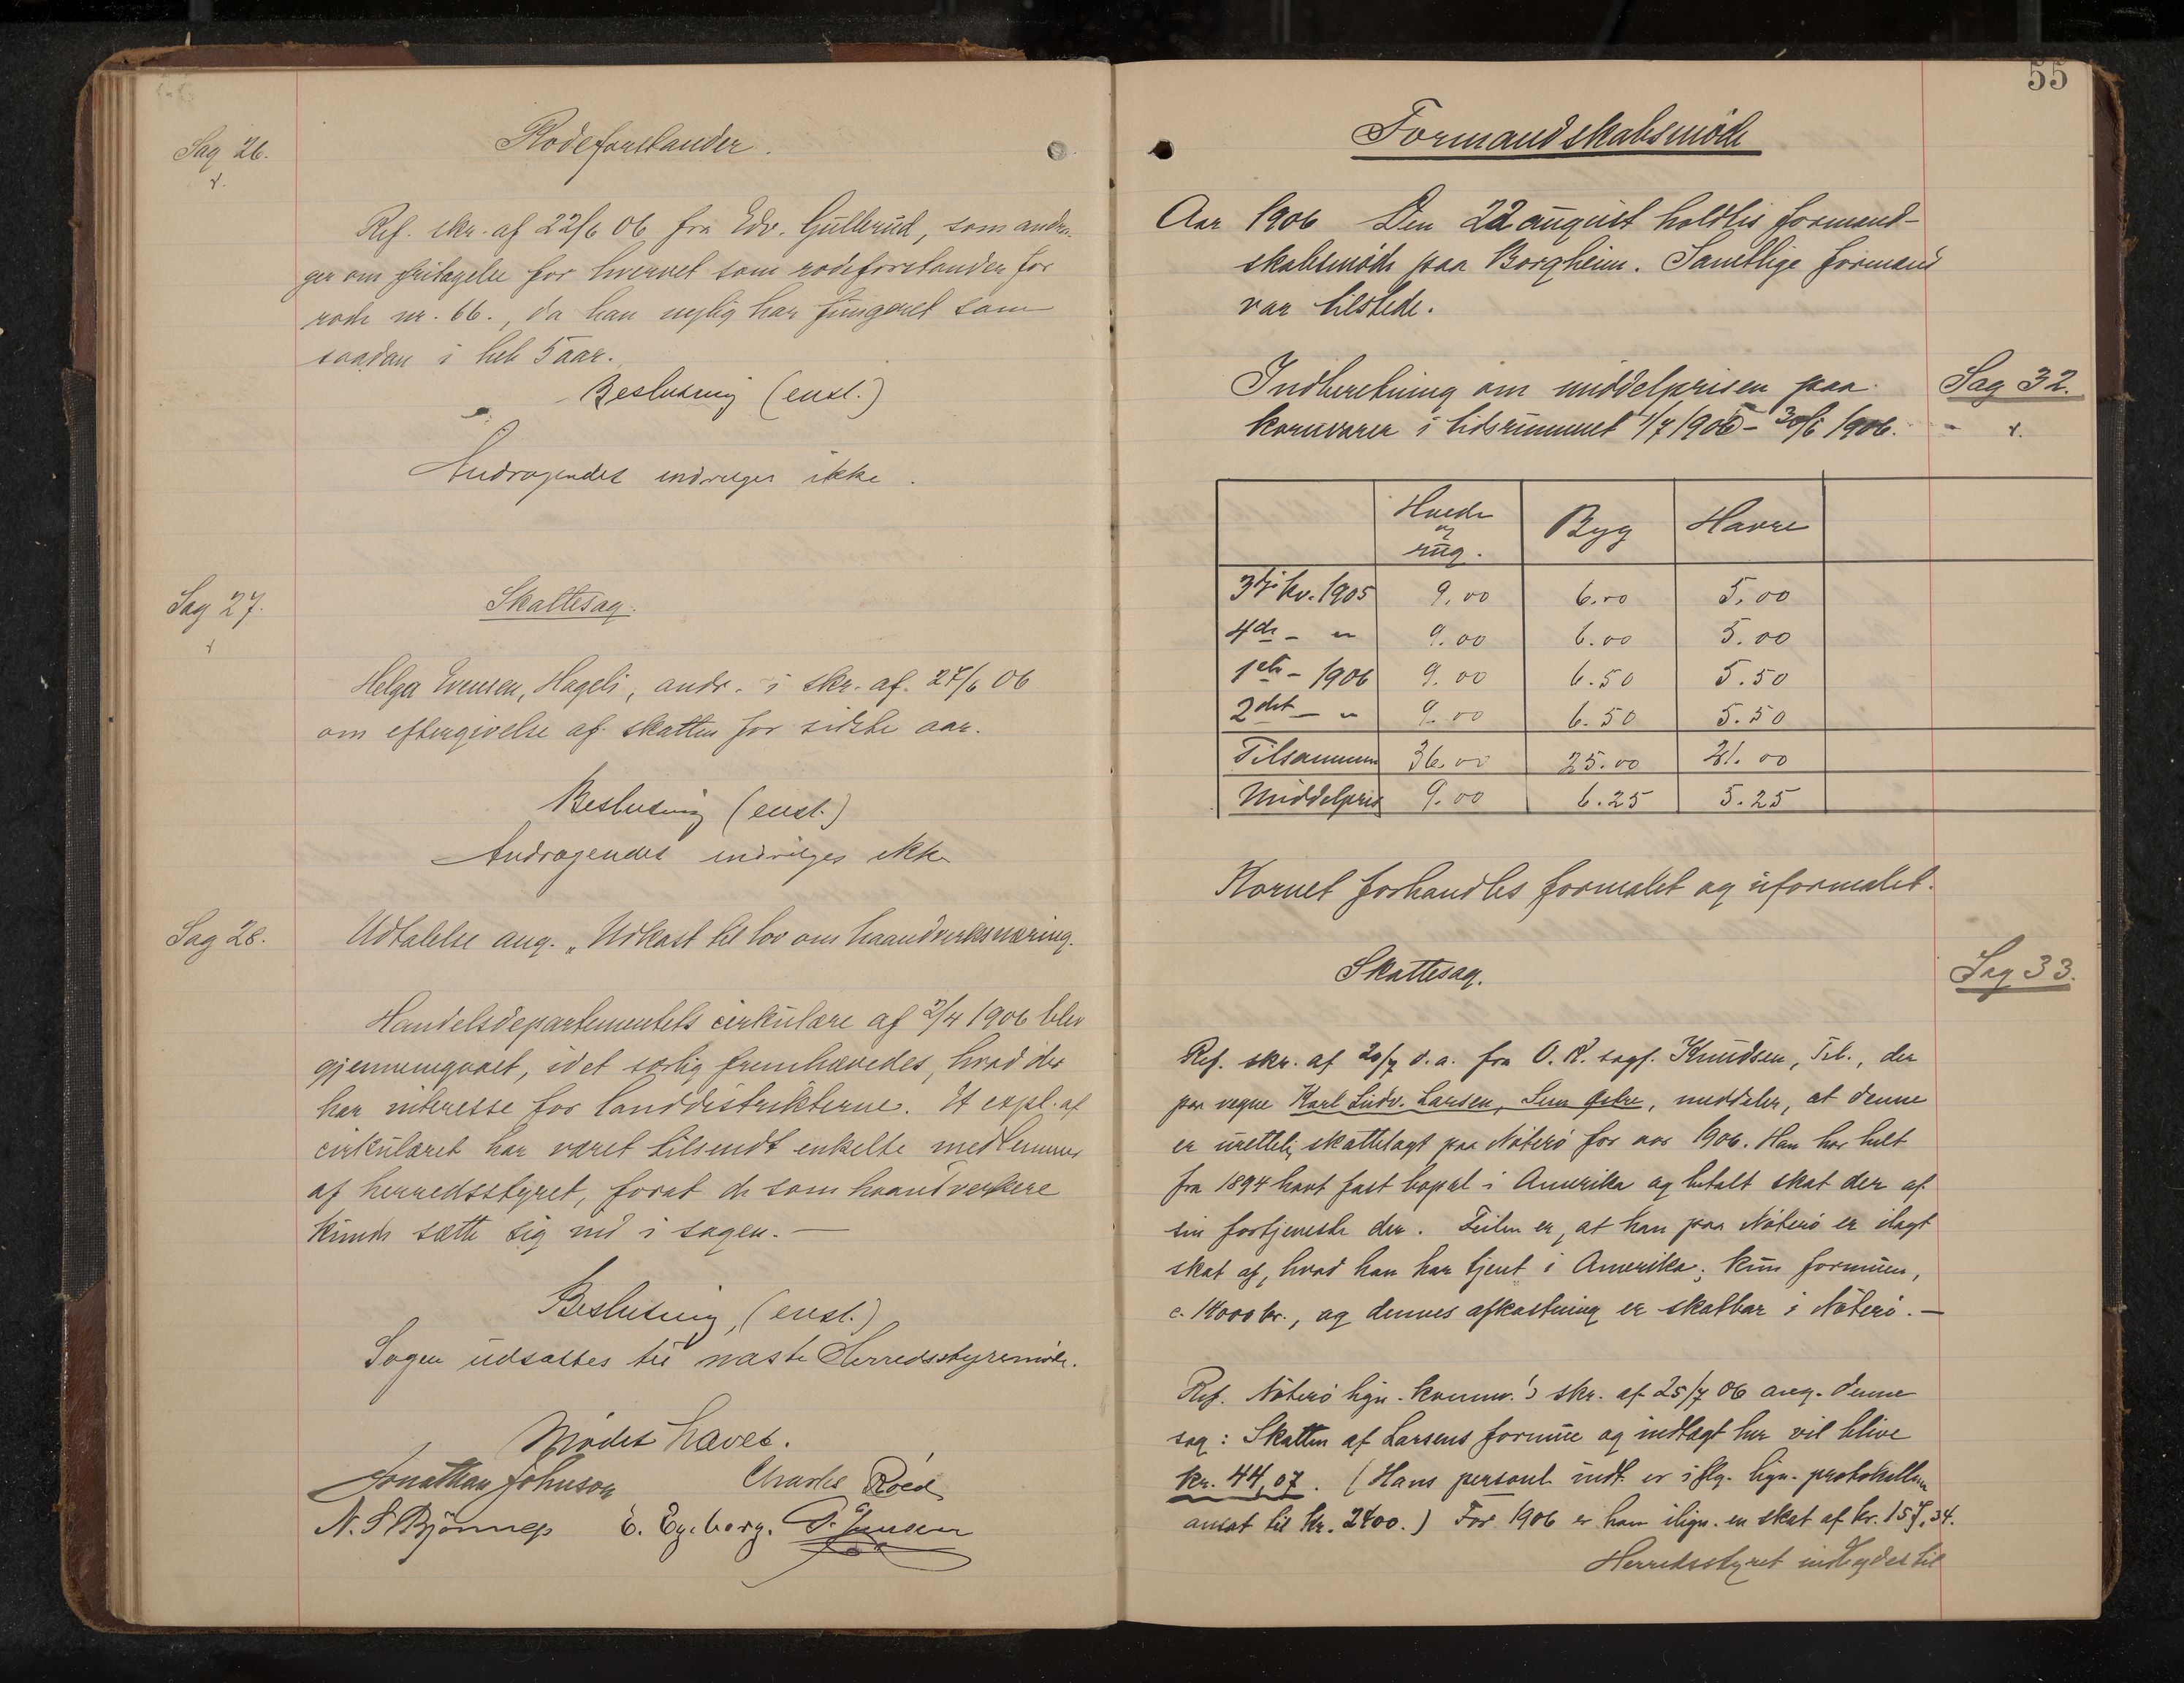 Sag 26.
Rodeforstander.
Ref. skr. af 22/6 06 fra Edv. Gullerud, som andra-
ger om fritagelse for hvervet som rodeforstander for
rode nr. 66., da han nylig har fungeret som
saadan i hele 5 aar.
Beslutning (enst.)
Andragendet indvilges ikke.
Sag 27.
Skattesag.
Helga Evensen, Hageli, andr. i skr. af 27/6 06
om eftergivelse af skatten for sidste aar.
Beslutning (enst.)
Andragendet indvilges ikke
Sag 28.
Udtalelse ang. „Udkast til lov om haandverksnæring.
Handelsdepartementets cirkulære af 2/4 1906 blev
gjennemgaaet, idet særlig fremhævedes, hvad der
har interesse for landdistrikterne. Et expl. af
cirkulæret har været tilsendt enkelte medlemmer
af herredsstyret, forat de som haandverkere
kunde sætte sig ind i sagen. —
Beslutning, (enst.)
Sagen udsættes til næste Herredsstyremöde.
Mödet hævet.
Jonathan Johnson Charles Röed
N. S. Bjönnes E. Egeberg. P. Jensen
55
Formandskabsmöde
Aar 1906 Den 22 august holdtes formand-
skabsmöde paa Borgheim. Samtlige formænd
var tilstede.
Indberetning om middelprisen paa Sag 32.
kornvarer i tidsrummet 1/7 1905 - 30/6 1906.
Hvede og rug. Byg Havre
3dje kv. 1905 9.00 6.00 5.00
4de - " 9.00 6.00 5.00
1ste - 1906 9.00 6.50 5.50
2det - " 9.00 6.50 5.50
Tilsammen 36.00 25.00 21.00
Middelpris 9.00 6.25 5.25
Kornet forhandles formalet og uformalet.
Skattesag. Sag 33.
Ref. skr. af 20/7 d.a. fra O.R. sagf. Knudsen, Tbg., der
paa vegne Karl Ludv. Larsen, Sem Østre, meddeler, at denne
er urettelig skattelagt paa Nöterö for aar 1906. Han har helt
fra 1894 havt fast bopæl i Amerika og betalt skat der af
sin fortjeneste der. Feilen er, at han paa Nöterö er ilagt
skat af, hvad han har tjent i Amerika; kun formuen,
c. 14000 kr., og dennes afkastning er skatbar i Nöterö. —
Ref. Nöterö lign. komm.'s skr. af 25/7 06 ang. denne
sag: Skatten af Larsens formue og indtægt her vil blive
kr. 44,07. (Hans personl. indt. er iflg. lign. protokollen
ansat til kr. 2400.) For 1906 er han ilign. en skat af kr. 157,34.
Herredsstyret indbydes til